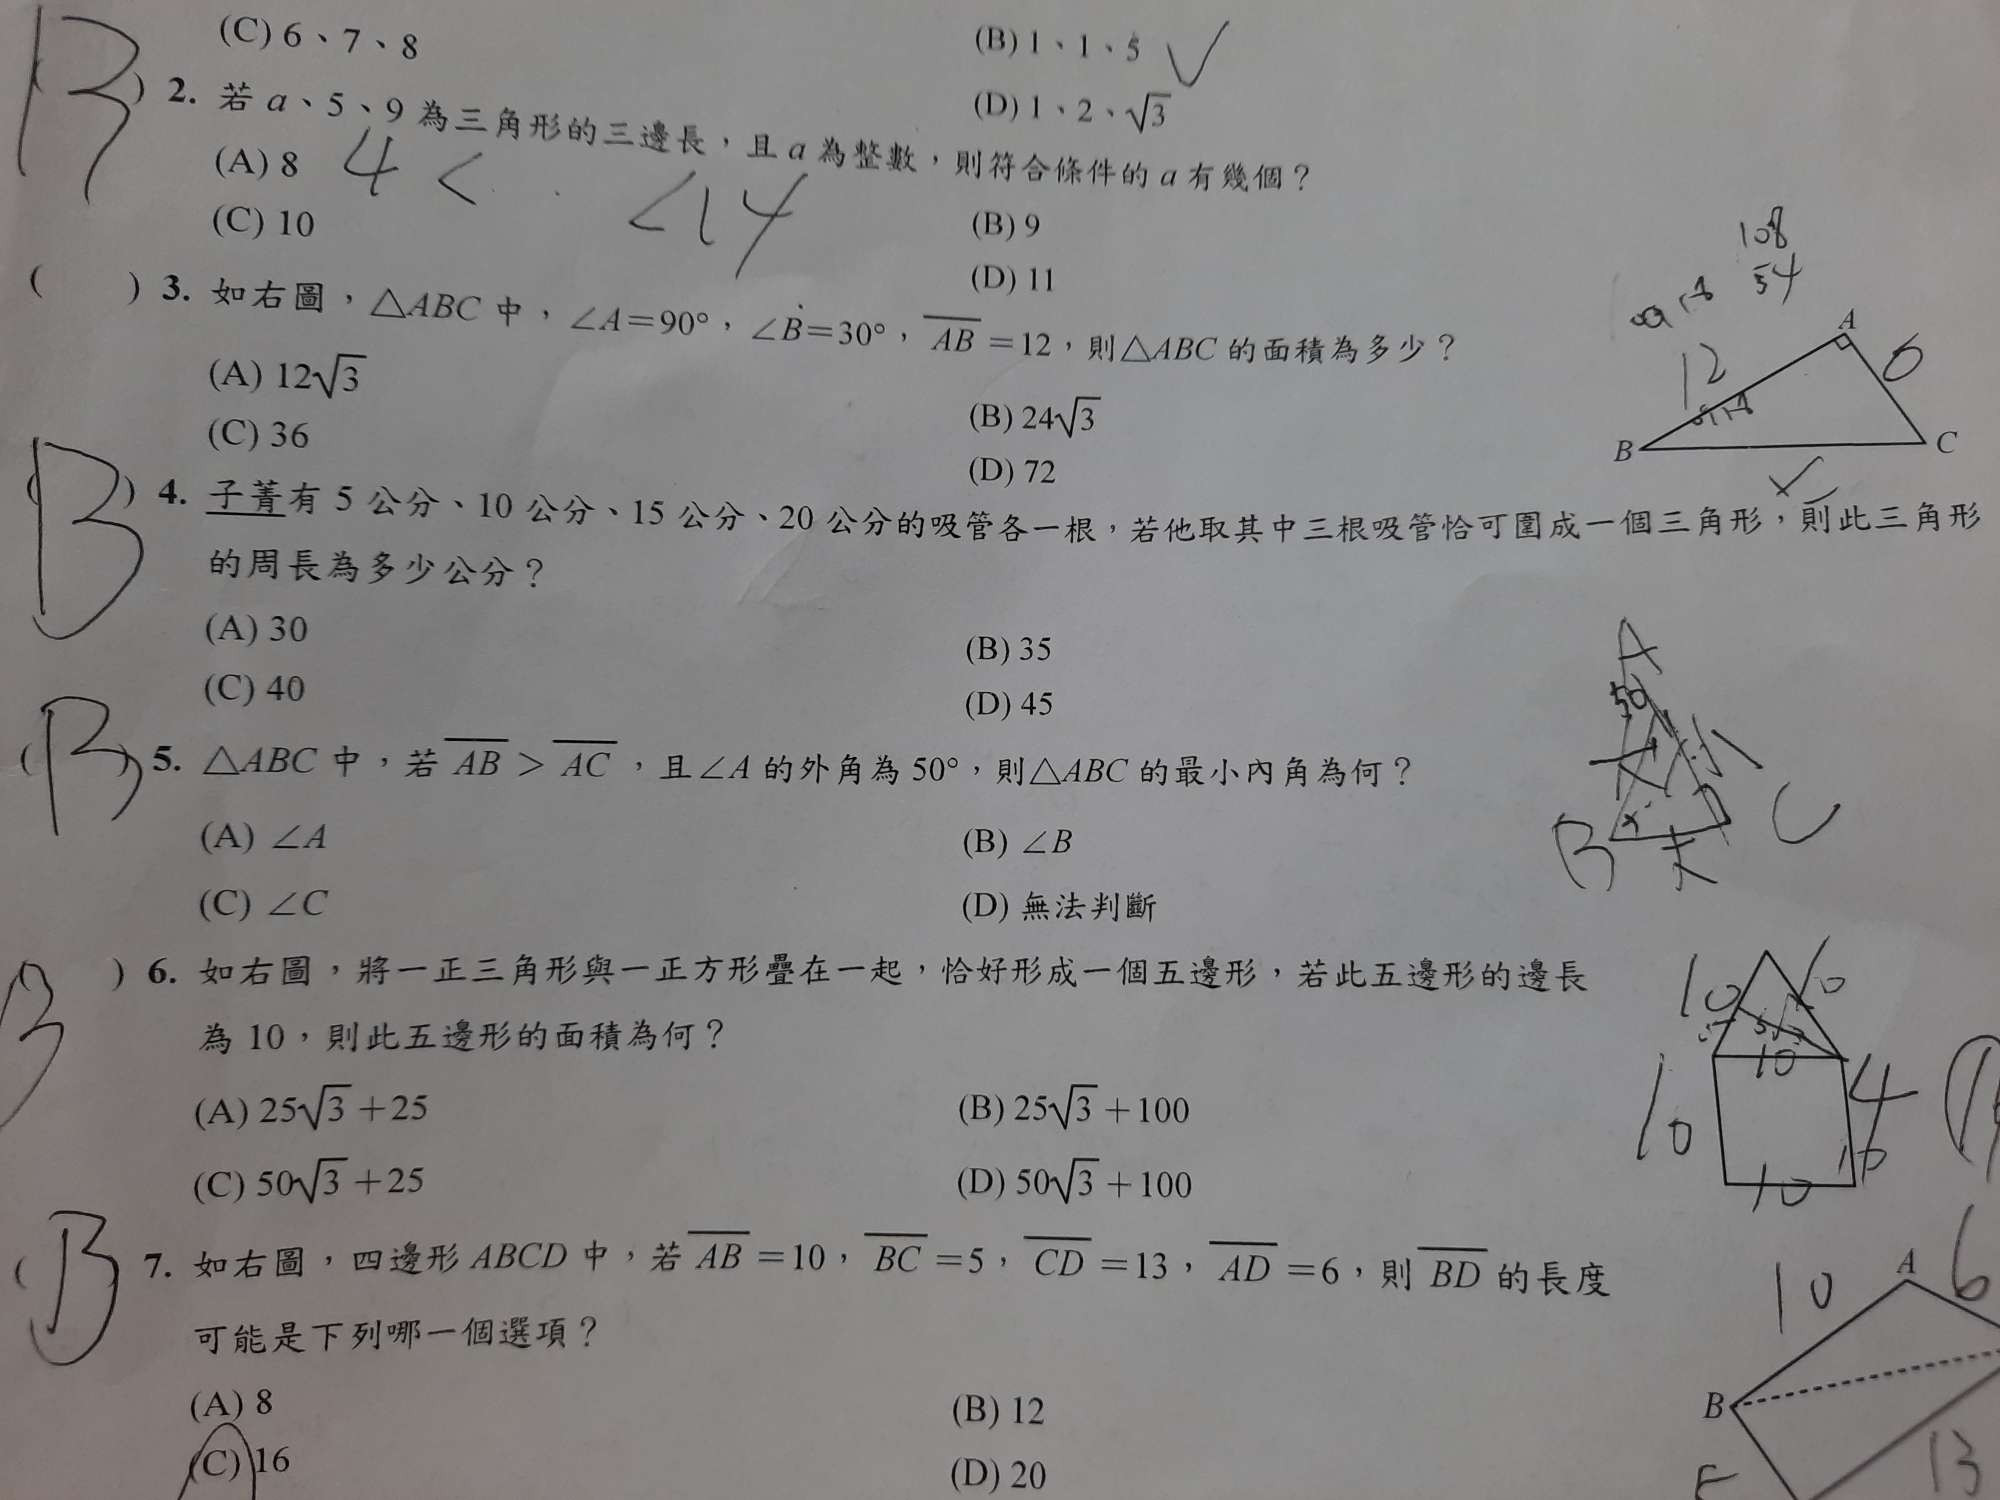 (C) 6、7、8
(B) 1、1、5 ✓
(D) 1、2、√3
B ) 2. 若 a、5、9 為三角形的三邊長，且 a 為整數，則符合條件的 a 有幾個？
(A) 8
4 < < 14
(B) 9
(C) 10
(D) 11
( ) 3. 如右圖，△ABC 中，∠A=90°，∠B=30°，AB=12，則△ABC 的面積為多少？
(A) 12√3
(B) 24√3
(C) 36
(D) 72
108
54
A
12
6
B
C
( B ) 4. 子菁有 5 公分、10 公分、15 公分、20 公分的吸管各一根，若他取其中三根吸管恰可圍成一個三角形，則此三角形
的周長為多少公分？
(A) 30
(B) 35
(C) 40
(D) 45
( B ) 5. △ABC 中，若 AB > AC，且∠A 的外角為 50°，則△ABC 的最小內角為何？
(A) ∠A
(B) ∠B
(C) ∠C
(D) 無法判斷
A
50
大
小
B
x
C
大
B ) 6. 如右圖，將一正三角形與一正方形疊在一起，恰好形成一個五邊形，若此五邊形的邊長
為 10，則此五邊形的面積為何？
(A) 25√3+25
(B) 25√3+100
(C) 50√3+25
(D) 50√3+100
10
10
5
5√3
10
10
10
10
( B ) 7. 如右圖，四邊形 ABCD 中，若 AB=10，BC=5，CD=13，AD=6，則 BD 的長度
可能是下列哪一個選項？
(A) 8
(B) 12
(C) 16
(D) 20
A
10
6
B
13